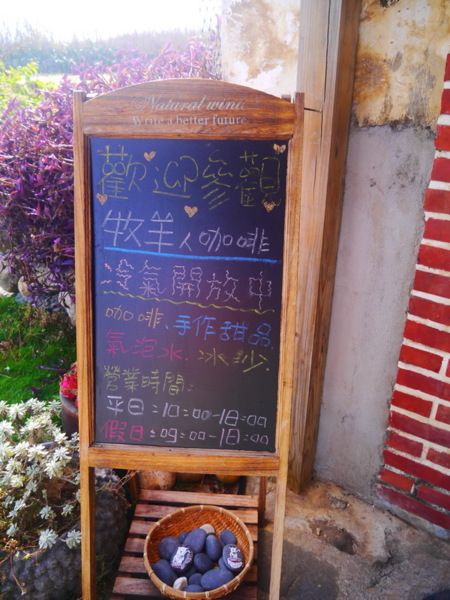 Natural wind
Write a better future
歡迎參觀
牧羊人咖啡
冷氣開放中
咖啡、手作甜品、
氣泡水、冰紗.
營業時間:
平日=10:00-18:00
假日=09:00-18:00